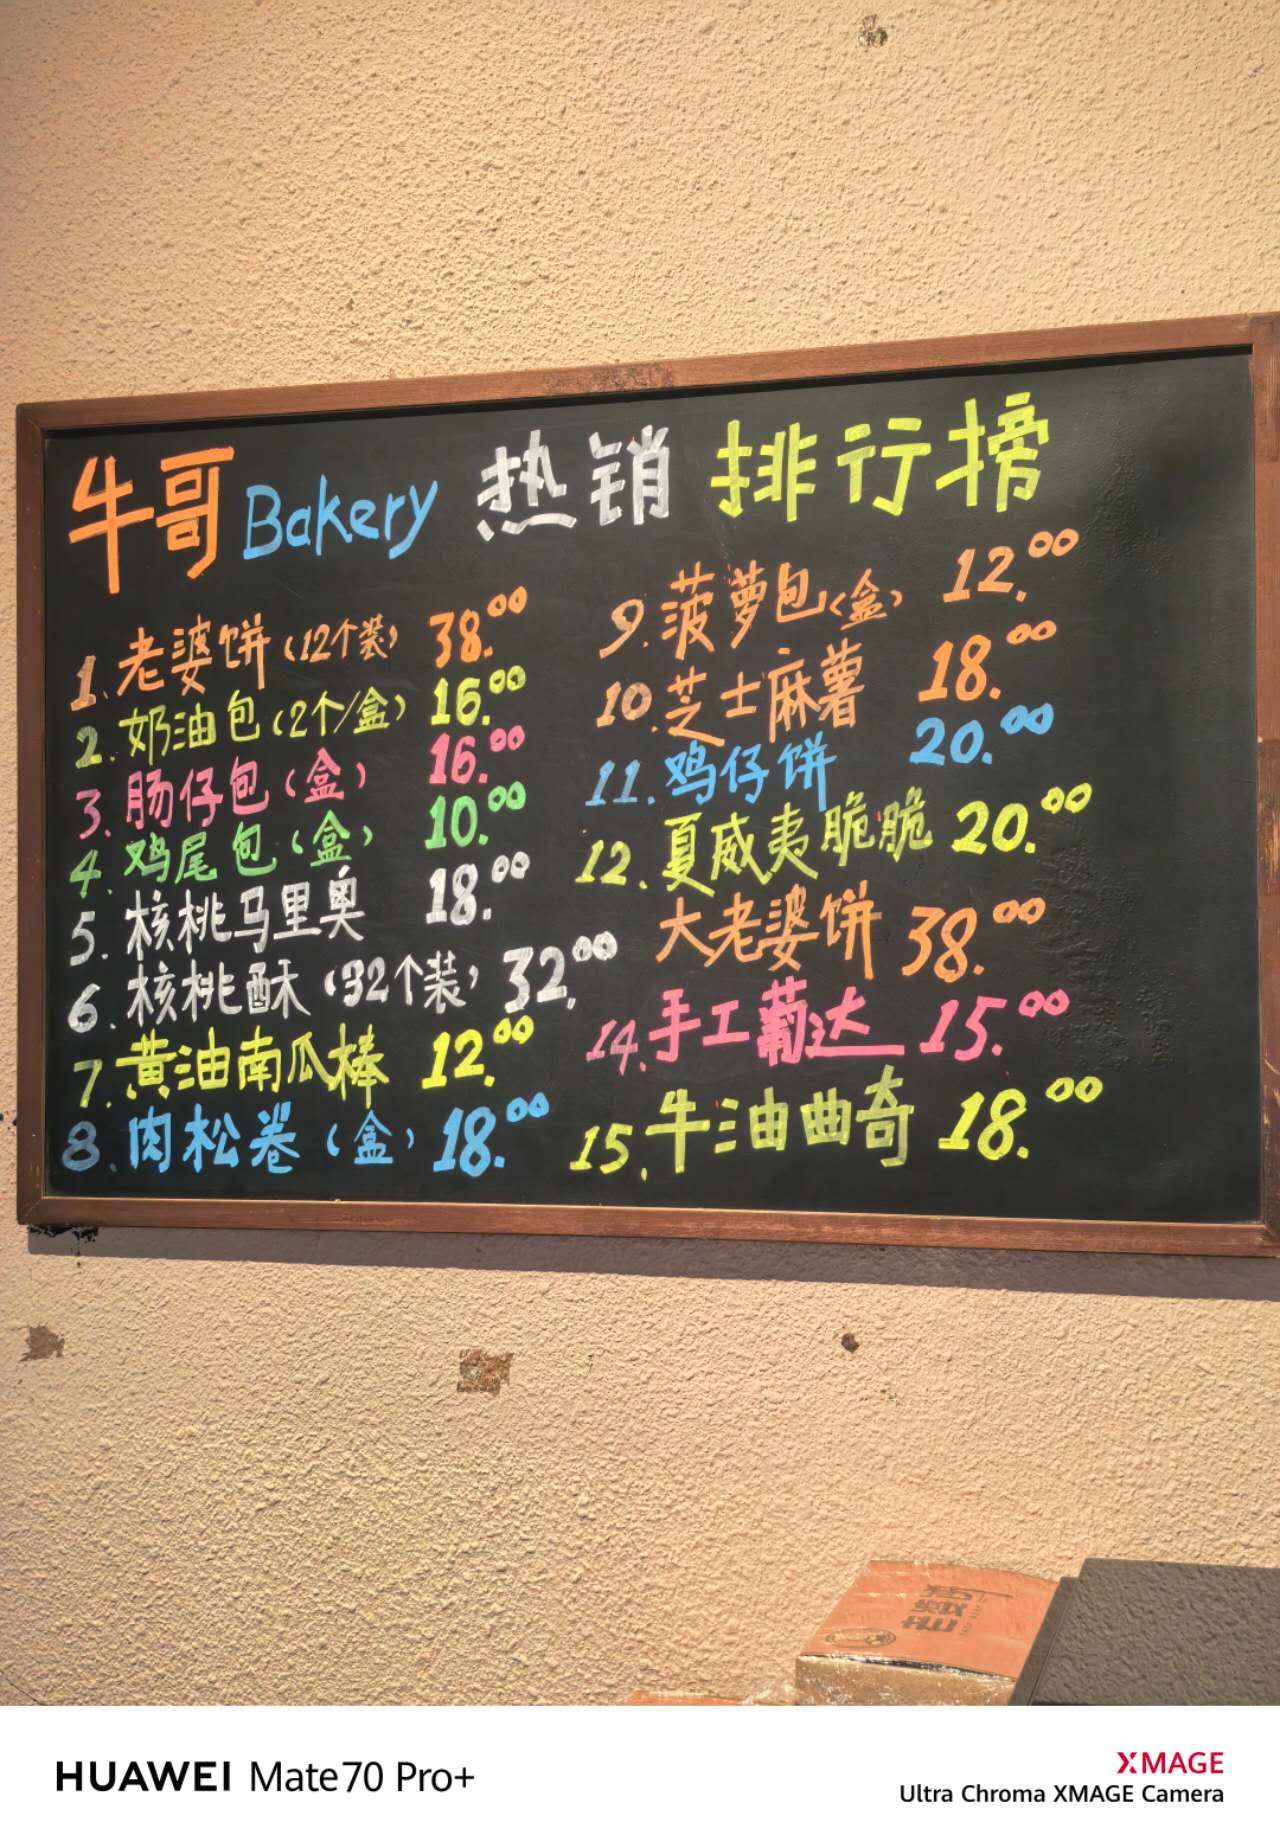 牛哥 Bakery 热销 排行榜
1. 老婆饼 (12个装) 38.00
2. 奶油包 (2个/盒) 16.00
3. 肠仔包 (盒) 16.00
4. 鸡尾包 (盒) 10.00
5. 核桃马里奥 18.00
6. 核桃酥 (32个装) 32.00
7. 黄油南瓜棒 12.00
8. 肉松卷 (盒) 18.00
9. 菠萝包<盒> 12.00
10. 芝士麻薯 18.00
11. 鸡仔饼 20.00
12. 夏威夷脆脆 20.00
大老婆饼 38.00
14. 手工葡达 15.00
15. 牛油曲奇 18.00
HUAWEI Mate70 Pro+
XMAGE
Ultra Chroma XMAGE Camera